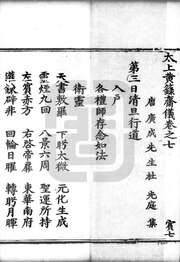 太上黃籙齋儀卷之七
賓七
唐廣成先生杜光庭集
第三日清旦行道
入戶
各禮師存念如法
衛靈
天書敷羅 下眄太微 元化生成
靈煙九回 八景六周 聖運所持
左賓赤方 右啓帝扉 東華南府
溥試辟非 回輪日曜 轉眄月暉